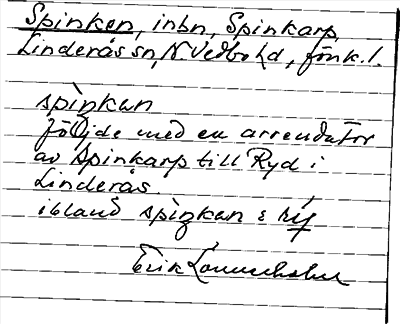 Spinken, inbn, Spinkarp,
Linderås sn, N. Vedbo hd, Jönk.l.
spiŋkan
följde med en arrendator
av Spinkarp till Ryd i
Linderås.
ibland spiŋkan i
Erik Lönnerholm